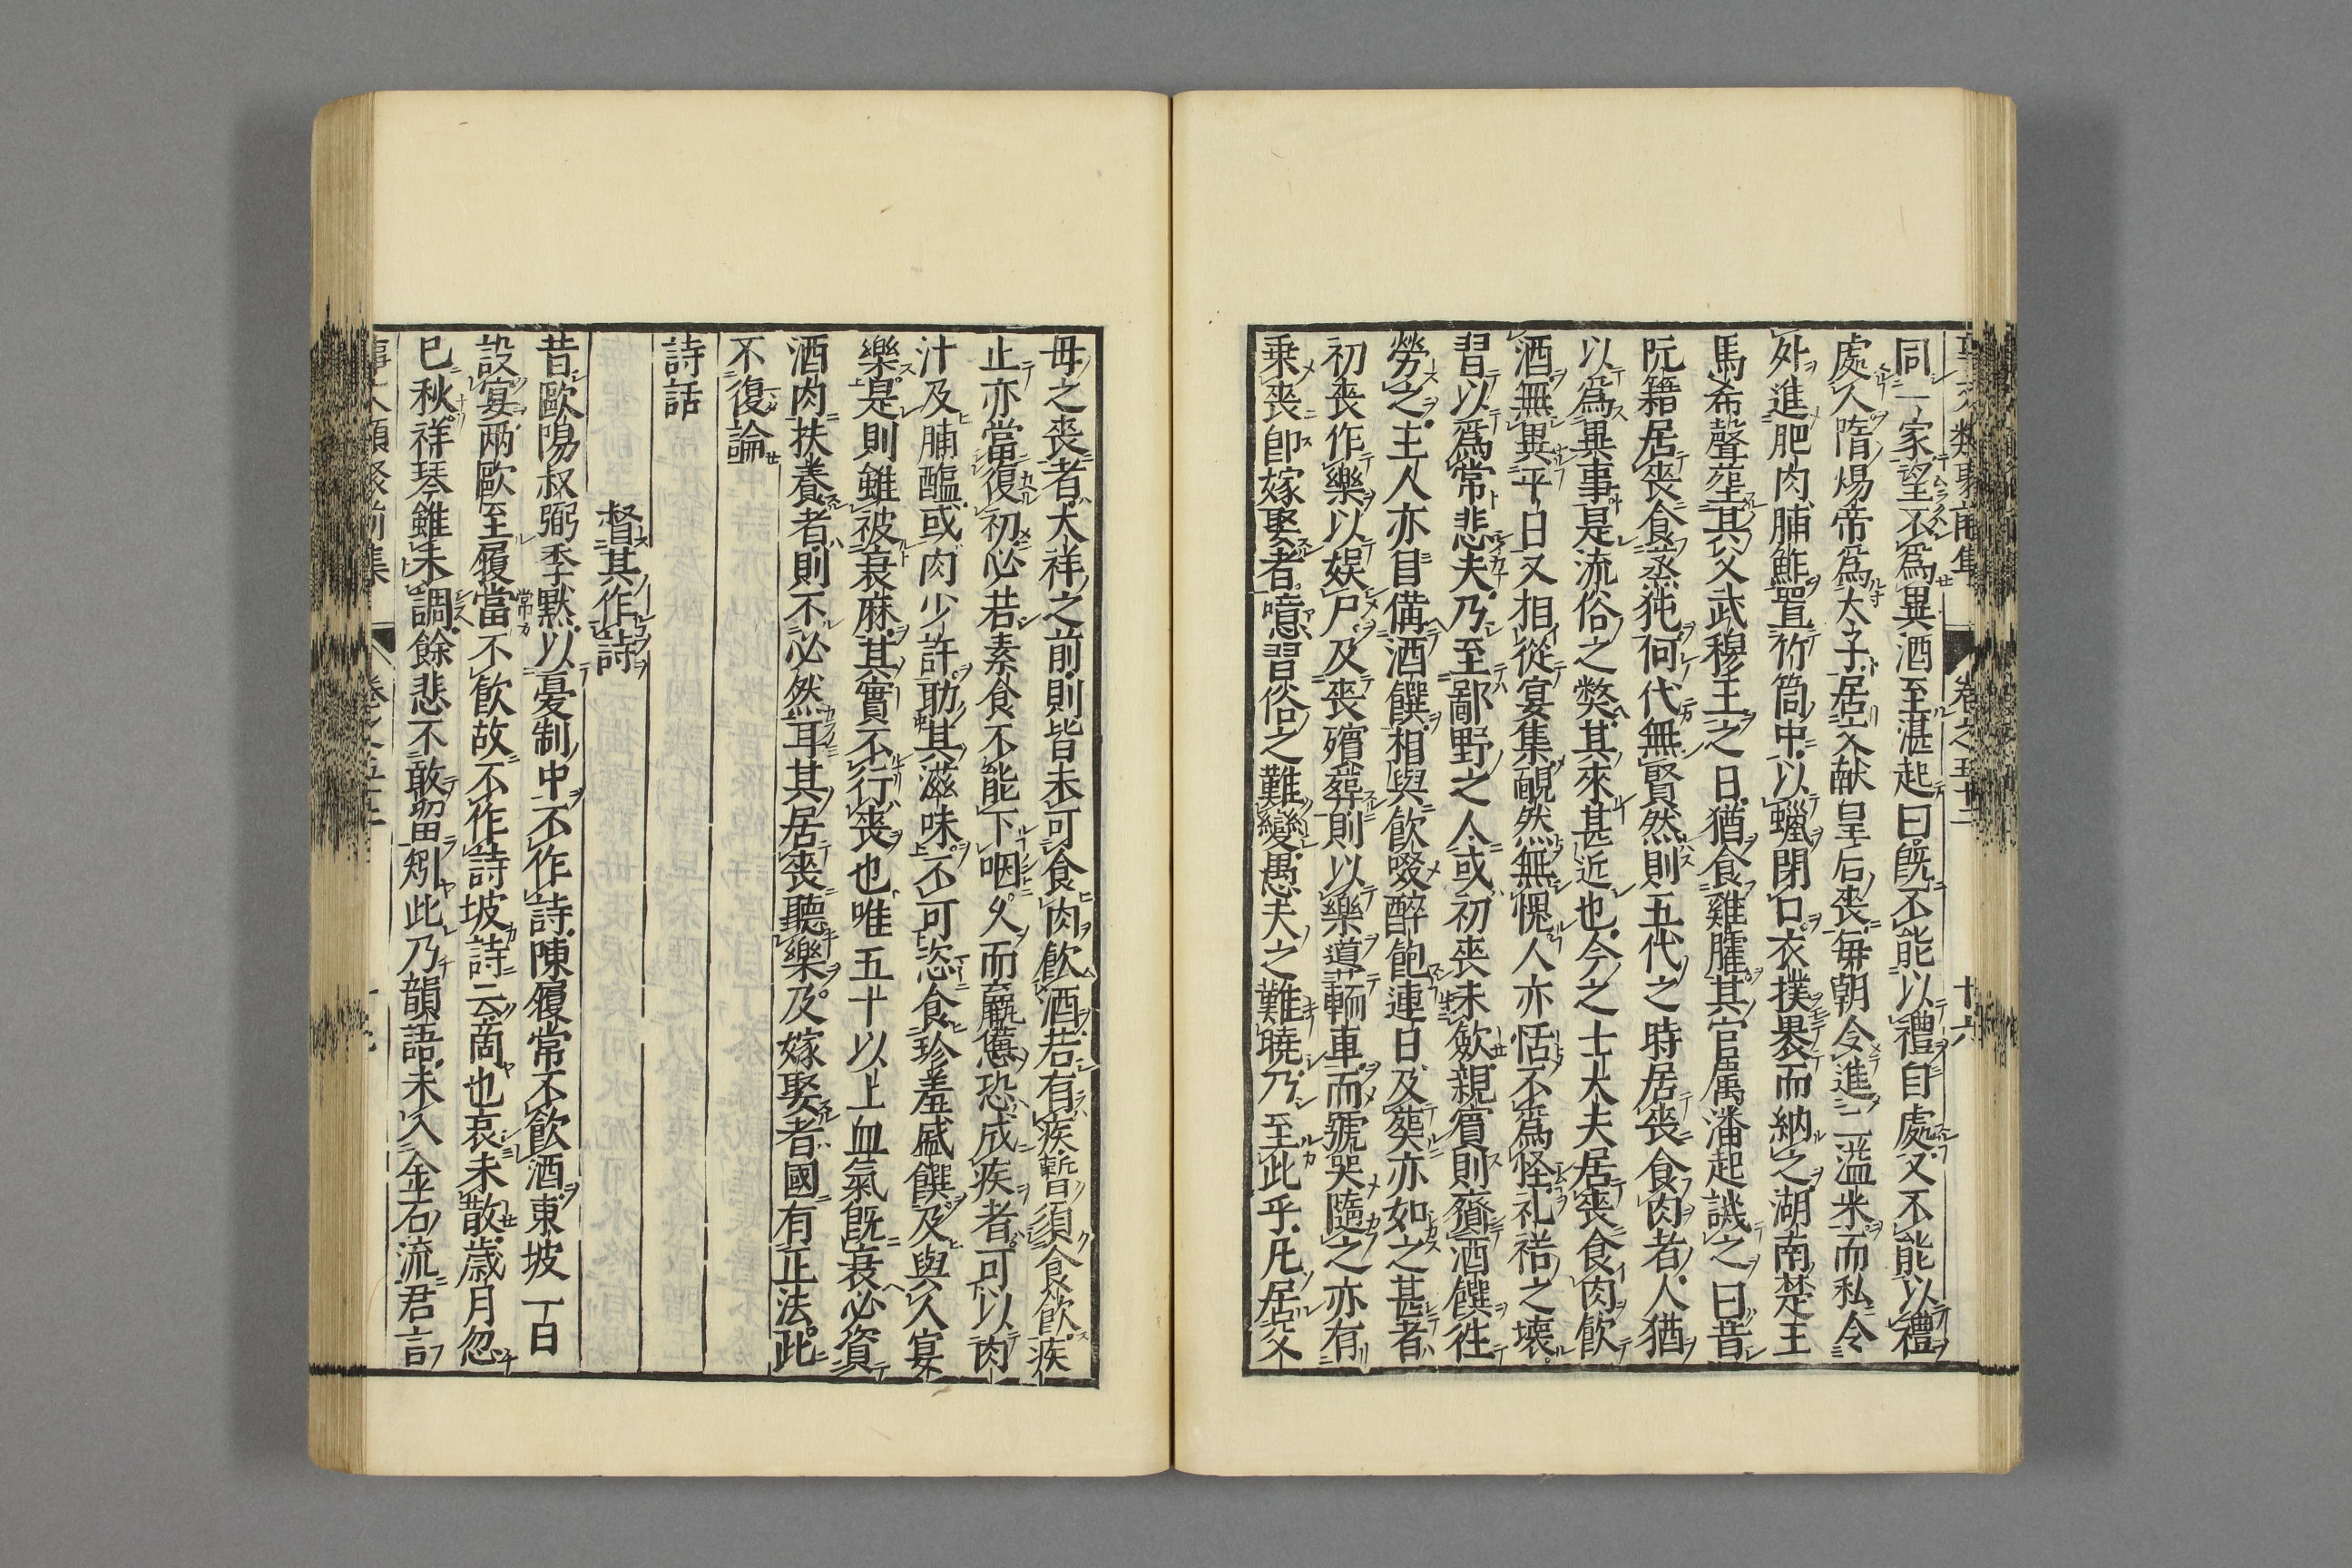 同一家望不爲異酒至湛起曰旣不能以禮自處又不能以禮
處人隋煬帝爲太子居文献皇后喪毎朝令進二溢米而私令
外進肥肉脯鮓置竹筒中以蠟閉口衣襆裹而納之湖南楚王
馬希聲塟其父武穆王之日猶食雞臛其官属潘起譏之曰昔
阮籍居喪食蒸㹠何代無賢然則五代之時居喪食肉者人猶
以爲異事是流俗之弊其來甚近也今之士大夫居喪食肉飲
酒無異平日又相從宴集靦然無愧人亦恬不爲怪礼俗之壊
習以爲常悲夫乃至鄙野之人或初喪未歛親賓則齎酒饌徃
勞之主人亦自備酒饌相與飲啜醉飽連日及葬亦如之甚者
初喪作樂以娯尸及殯葬則以樂導輀車而號哭隨之亦有
乗喪即嫁娶者噫習俗之難變愚夫之難曉乃至此乎凡居父
母之喪者大祥之前則皆未可食肉飲酒若有疾暫須食飲疾
止亦當復初必若素食不能下咽久而羸憊恐成疾者可以肉
汁及脯醢或肉少許助其滋味不可恣食珍羞盛饌及與人宴
樂是則雖被衰麻其實不行喪也唯五十以上血氣旣衰必資
酒肉扶養者則不必然耳其居喪聽樂及嫁娶者國有正法此
不復論
詩話
督其作詩
昔歐陽叔弼季黙以憂制中不作詩陳履常不飲酒東坡一日
設宴兩歐至履當不飲故不作詩坡詩云商也哀未散歳月忽
已秋祥琴雖未調餘悲不敢留矧此乃韻語未入金石流君言